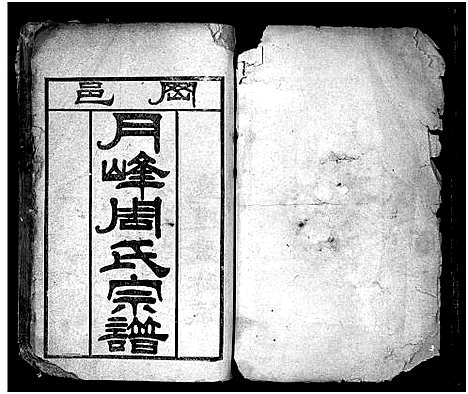 岡邑
月峰周氏宗譜